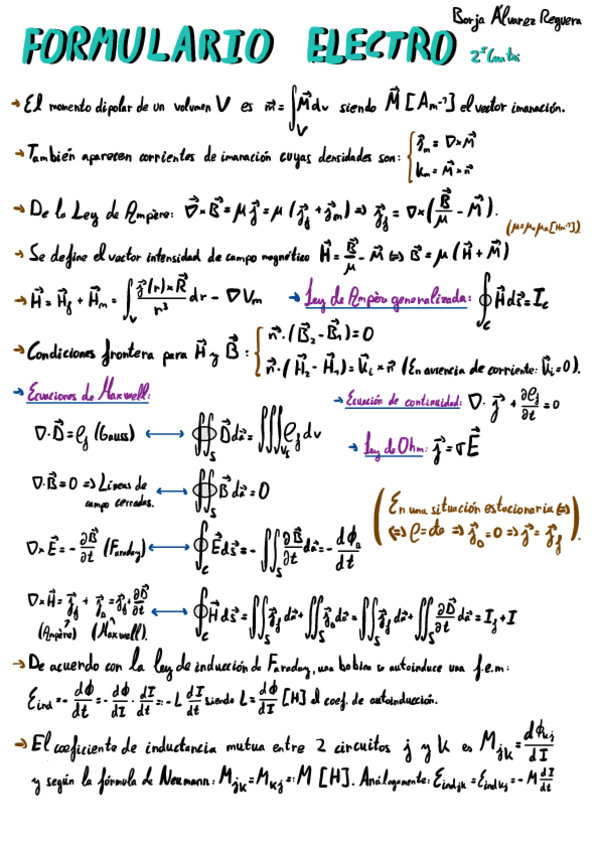 Borja Álvarez Reguera
FORMULARIO ELECTRO 2º Cuatri
→ El momento dipolar de un volumen V es m⃗ = ∫_V M⃗ dv siendo M⃗ [Am⁻¹] el vector imanación.
→ También aparecen corrientes de imanación cuyas densidades son: { j⃗_m = ∇×M⃗
k_m = M⃗×n⃗
→ De la Ley de Ampère: ∇×B⃗ = μ j⃗ = μ (j⃗_f + j⃗_m) ⇒ j⃗_f = ∇×(B⃗/μ - M⃗).
→ Se define el vector intensidad de campo magnético H⃗ = B⃗/μ - M⃗ ⇔ B⃗ = μ (H⃗ + M⃗)
→ H⃗ = H⃗_f + H⃗_m = ∫_V j⃗(r)×R⃗/r³ dr - ∇V_m → Ley de Ampère generalizada: ∮_C H⃗ dl⃗ = I_c
→ Condiciones frontera para H⃗ y B⃗: { n⃗·(B⃗₂ - B⃗₁) = 0
n⃗·(H⃗₂ - H⃗₁) = k⃗_i × n⃗ (En ausencia de corriente: k⃗_i = 0).
→ Ecuaciones de Maxwell: → Ecuación de continuidad: ∇· j⃗ + ∂ρ_f/∂t = 0
∇·D⃗ = ρ_f (Gauss) ⟷ ∯_S D⃗ da⃗ = ∭_V ρ_f dv → Ley de Ohm: j⃗ = σE⃗
∇·B⃗ = 0 ⇒ Líneas de campo cerradas. ⟷ ∯_S B⃗ da⃗ = 0
(En una situación estacionaria ⇔
⇔ ρ = cte ⇒ j⃗_D = 0 ⇒ j⃗ = j⃗_f).
∇×E⃗ = - ∂B⃗/∂t (Faraday) ⟷ ∮_C E⃗ ds⃗ = - ∬_S ∂B⃗/∂t da⃗ = - dϕ/dt
∇×H⃗ = j⃗_f + j⃗_D = j⃗_f + ∂D⃗/∂t ⟷ ∮_C H⃗ ds⃗ = ∬_S j⃗_f da⃗ + ∬_S j⃗_D da⃗ = ∬_S j⃗_f da⃗ + ∬_S ∂D⃗/∂t da⃗ = I_f + I
(Ampère) (Maxwell).
→ De acuerdo con la ley de inducción de Faraday, una bobina se autoinduce una f.e.m:
ℰ_ind = - dϕ/dt = - dϕ/dI · dI/dt = - L dI/dt siendo L = dϕ/dI [H] el coef. de autoinducción.
→ El coeficiente de inductancia mutua entre 2 circuitos j y k es M_jk = dϕ_kj/dI
y según la fórmula de Neumann: M_jk = M_kj =: M [H]. Análogamente: ℰ_indjk = ℰ_indkj = - M dI/dt